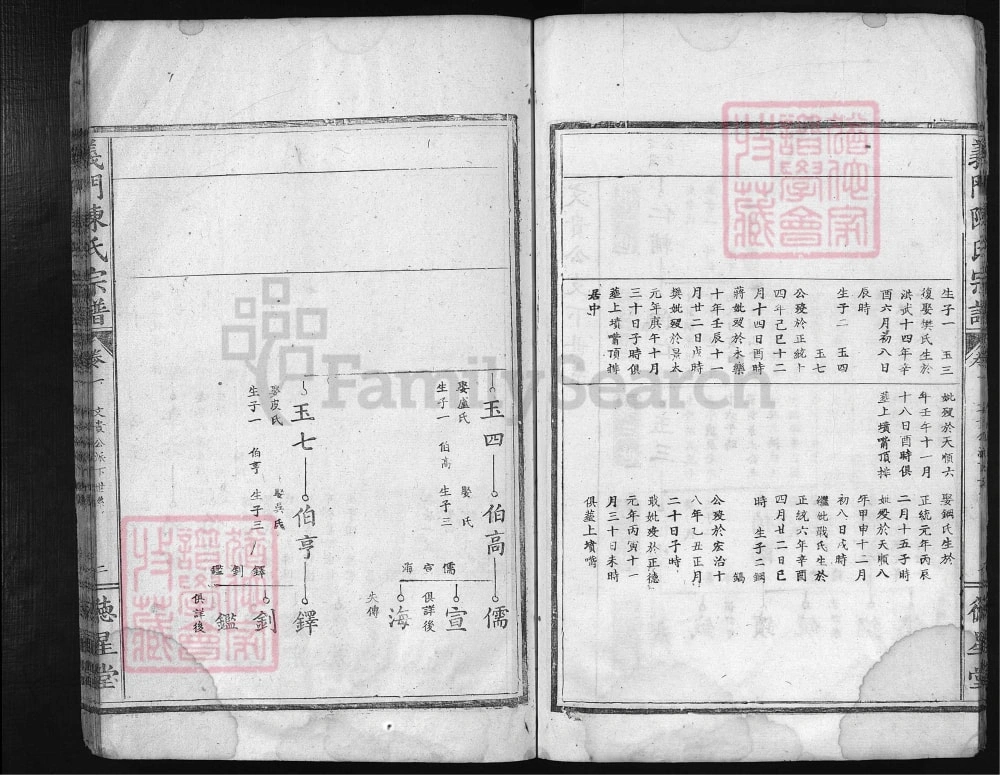 義門陳氏宗譜
生子一 玉三
復娶樊氏生於
洪武十四年辛
酉六月初八日
辰時
生子二 玉四
玉七
公歿於正統十
四年己巳十二
月十四日酉時
蔣妣歿於永樂
十年壬辰十一
月廿二日戌時
樊妣歿於景太
元年庚午十月
三十日子時俱
墓上墳嘴頂排
居中
妣歿於天順六
年壬午十一月
十八日酉時俱
墓上墳嘴頂排
娶鋼氏生於
正統元年丙辰
二月十五子時
妣歿於天順八
年甲申十二月
初八日戌時
繼妣戢氏生於
正統六年辛酉
四月廿二日巳
時 生子二 鋼
鎬
公歿於宏治十
八年乙丑正月
二十日子時
戢妣歿於正德
元年丙寅十一
月三十日未時
俱墓上墳嘴
德星堂
玉四
娶盧氏
生子一 伯高
伯高
娶 氏
生子三
儒
宣
海
儒
宣
俱詳後
海
失傳
玉七
娶皮氏
生子一 伯亨
伯亨
娶吳氏
生子三
鐸
釗
鑑
鐸
釗
鑑
俱詳後
義門陳氏宗譜
卷一
文貴公派下世系
二
德星堂
譜學會
特藏
FamilySearch